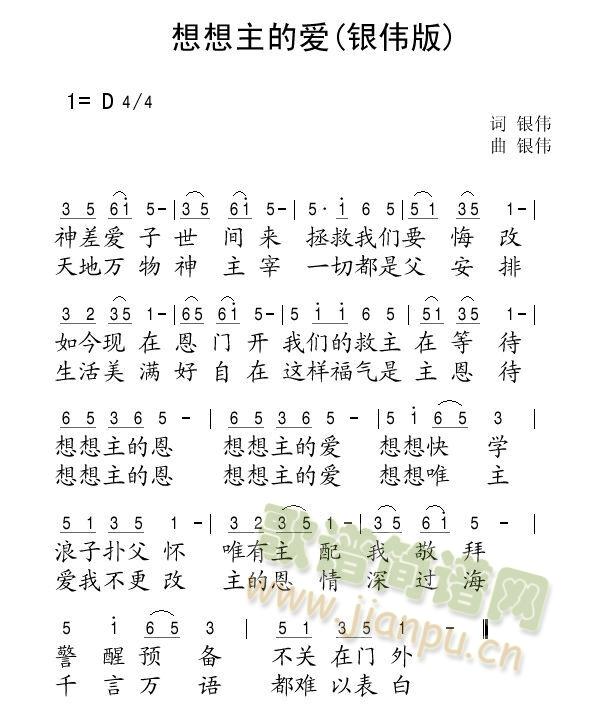 想想主的爱(银伟版)
1= D 4/4
词 银伟
曲 银伟
3 5 6i 5-|35 6i 5-|5·i 6 5|51 35 1-|
神差爱子世间来 拯救我们要悔改
天地万物神主宰 一切都是父安排
3 2 35 1-|65 6i 5-|5 i i 6 5|51 35 1-|
如今现在恩门开 我们的救主在等待
生活美满好自在 这样福气是主恩待
6 5 3 6 5 -|6 5 3 6 5 -|5 i 65 3|
想想主的恩 想想主的爱 想想快学
想想主的恩 想想主的爱 想想唯主
5 1 35 1-|3 2 3 5 1-|35 6i 5-|
浪子扑父怀 唯有主配我敬拜
爱我不更改 主的恩情深过海
5 i 65 3|51 35 1-‖
警醒预备 不关在门外
千言万语 都难以表白
歌谱简谱网
www.jianpu.cn